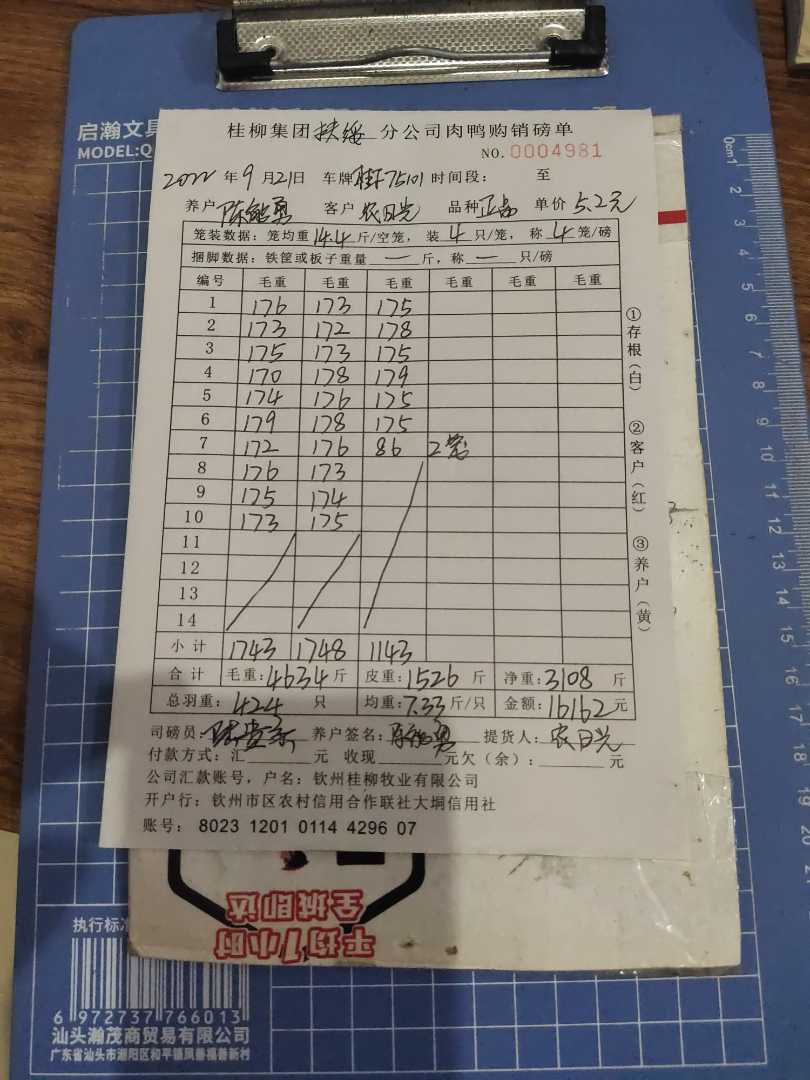 启瀚文具
MODEL:Q
桂柳集团扶绥分公司肉鸭购销磅单
NO.0004981
2022年9月21日 车牌桂F75101 时间段: 至
养户 陈能勇 客户 农日光 品种 正品 单价 5.2元
笼装数据:笼均重14.4斤/空笼,装4只/笼,称4笼/磅
捆脚数据:铁筐或板子重量一斤,称一只/磅
编号 毛重 毛重 毛重 毛重 毛重 毛重
1 176 173 175
2 173 172 178
3 175 173 175
4 170 178 179
5 174 176 175
6 179 178 175
7 172 176 86 2笼
8 176 173
9 175 174
10 173 175
11
12
13
14
小计 1743 1748 1143
合计 毛重:4634斤 皮重:1526斤 净重:3108斤
总羽重:424只 均重:7.33斤/只 金额:16162元
司磅员: 养户签名:陈能勇 提货人:农日光
付款方式:汇 元 收现 元欠(余): 元
公司汇款账号,户名:钦州桂柳牧业有限公司
开户行:钦州市区农村信用合作联社大垌信用社
账号: 8023 1201 0114 4296 07
①存根(白)
②客户(红)
③养户(黄)
平均1小时
全城即达
执行标准
6 972737 766013
汕头瀚茂商贸易有限公司
广东省汕头市潮阳区和平镇凤善福善新村